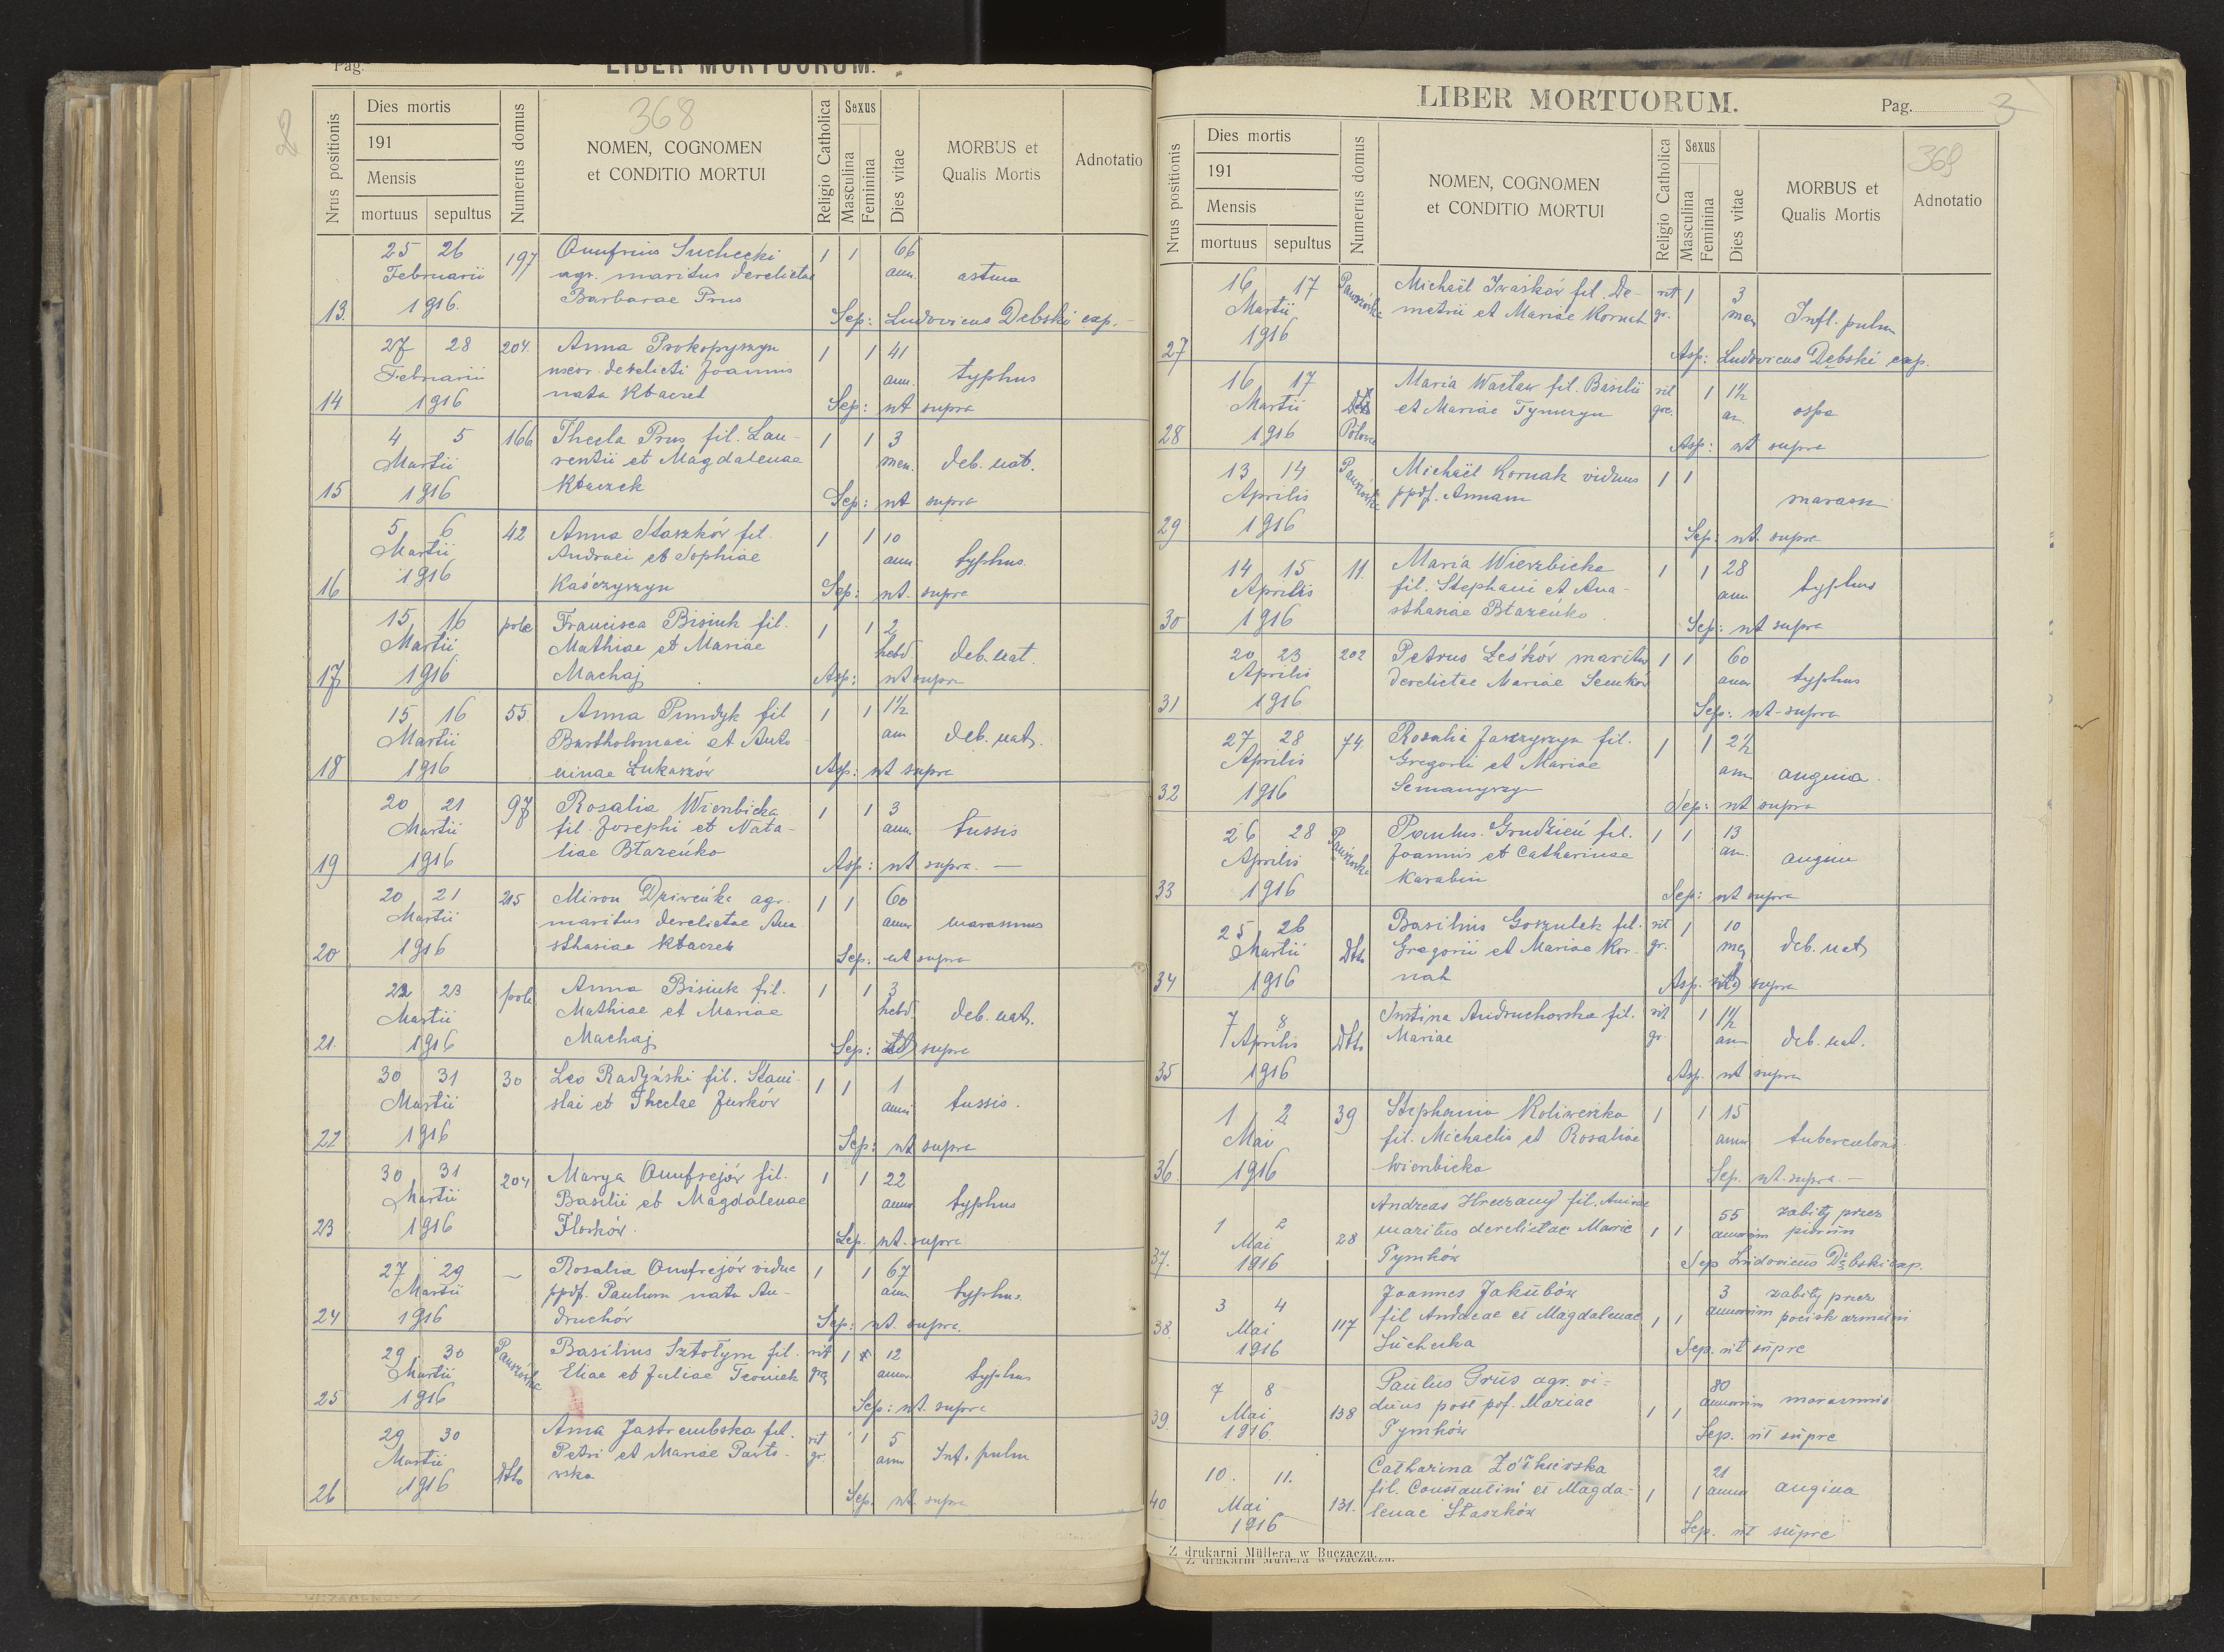 Pag.
LIBER MORTUORUM.
368
Nrus positionis
Dies mortis
191
Mensis
mortuus
sepultus
Numerus domus
NOMEN, COGNOMEN
et CONDITIO MORTUI
Religio Catholica
Sexus
Masculina
Feminina
Dies vitae
MORBUS et
Qualis Mortis
Adnotatio
25 26 197 Onufrius Suchecki 1 1 66
Februarii agr. maritus derelictae ann. astma
13. 1916. Barbarae Prus Sep: Ludovicus Debski exp.
27 28 204. Anna Prokopyszyn 1 1 41
Februarii uxor derelicti Joannis ann. typhus
14 1916 nata Kłaczek Sep: ut supra
4 5 166 Thecla Prus fil. Lau- 1 1 3
Martii rentii et Magdalenae men. deb. nat.
15 1916 Kłaczek Sep: ut supra
5 6 42 Anna Staszków fil. 1 1 10
Martii Andreae et Sophiae ann. typhus
16 1916 Sep: ut supra
15 16 pole Francisca Bisiuk fil. 1 1 2
Martii Mathiae et Mariae hebd. deb. nat.
17 1916 Machaj Asp: ut supra
15 16 55. Anna Pundyk fil 1 1 1½
Martii Bartholomaei et Anto- ann deb. nat.
18 1916 ninae Łukaszów Asp: ut supra
20 21 97 Rosalia Wierzbicka 1 1 3
Martii fil. Josephi et Nata- ann. tussis
19 1916 liae Błazeńko Asp: ut supra. —
20 21 215 Miron Dziweńka agr. 1 1 60
Martii maritus derelictae Ana ann marasmus
20 1916 sthasiae Kłaczek Sep: ut supra
22 23 pole Anna Bisiuk fil. 1 1 3
Martii Mathiae et Mariae hebd. deb. nat.
21. 1916 Machaj Sep: ut supra
30 31 30 Leo Radyński fil. Stani- 1 1 1
Martii slai et Theclae Jurków anni tussis.
22 1916 Sep: ut supra
30 31 204 Marya Onufrejów fil. 1 1 22
Martii Basilii et Magdalenae annor typhus
23 1916 Flośków. Sep. ut supra
27 29 — Rosalia Onufrejów vidua 1 1 67
Martii ppdf. Paulum nata An- ann typhus
24 1916 druchów Sep: ut supra.
29 30 Panszówka Basilius Sztołym fil. rit 1 12
Martii Eliae et Juliae grc annor typhus
25 1916 Sep: ut supra
29 30 Anna Jastrembska fil. rit 1 5
Martii Dtto Petri et Mariae Pawło- gr. ann Inf. pulm
26 1916 wska Sep. ut supra
LIBER MORTUORUM.
Pag. 3
369
Nrus positionis
Dies mortis
191
Mensis
mortuus
sepultus
Numerus domus
NOMEN, COGNOMEN
et CONDITIO MORTUI
Religio Catholica
Sexus
Masculina
Feminina
Dies vitae
MORBUS et
Qualis Mortis
Adnotatio
16 17 Panszówka Michaël Iwaśków fil. De- rit 1 3
Martii metrii et Mariae Kornak gr. men Infl. pulm
27 1916 Asp: Ludovicus Dębski exp.
16 17 Maria Wacław fil. Basilii rit 1 1½
Martii et Mariae Tymczyn grc. an. ospa
28 1916 Asp: ut supra
13 14 Panszówka Michaël Kornak viduus 1 1
Aprilis ppdf. Annam marasm
29 1916 Sep: ut supra
14 15 11. Maria Wierzbicka 1 1 28
Aprilis fil. Stephani et Ana- ann typhus
30 1916 sthasiae Błazeńko Sep: ut supra
20 23 202 Petrus Leśków maritus 1 1 60
Aprilis derelictae Mariae Senków annor typhus
31 1916 Sep: ut supra
27 28 74. Rosalia Jaszczyszyn fil. 1 1 2½
Aprilis Gregorii et Mariae ann angina.
32 1916 Semanyszyn Sep: ut supra
26 28 Panszówka Paulus Grudzień fil. 1 1 13
Aprilis Joannis et Catharinae an. angina
33 1916 Karabin Sep: ut supra
25 26 Basilius Goszulek fil. rit 1 10
Martii Dtto Gregorii et Mariae Kor- gr. men deb. nat
34 1916 nak Asp. ut supra
7 8 Justina Andruchowska fil. rit 1 1½
Aprilis Dtto Mariae gr. ann deb. nat.
35 1916 Asp. ut supra
1 2 39 Stephania Koliweszka 1 1 15
Mai fil. Michaelis et Rosaliae annor tuberculosis
36. 1916 Wierzbicka Sep. ut supra. —
1 2 28 Andreas Hreczany fil. 55 zabity przez
Mai maritus derelictae Mariae 1 1 annorum piorun
37. 1916 Tymków Sep Ludovicus Dębski exp.
3 4 117 Joannes Jakubów 3 zabity przez
Mai fil Andreae et Magdalenae 1 1 annorum pocisk armatni
38. 1916 Suchecka Sep. ut supra
7 8 138 Paulus Grus agr. vi- 80
Mai duus post pdf. Mariae 1 1 annorum marasmus
39. 1916. Tymków Sep. ut supra
10. 11. 131. Catharina Żółkiewska 21
Mai fil. Constantini et Magda- 1 1 annor angina
40 1916 lenae Staszków Sep. ut supra
Z drukarni Müllera w Buczaczu.
Z drukarni Müllera w Buczaczu.